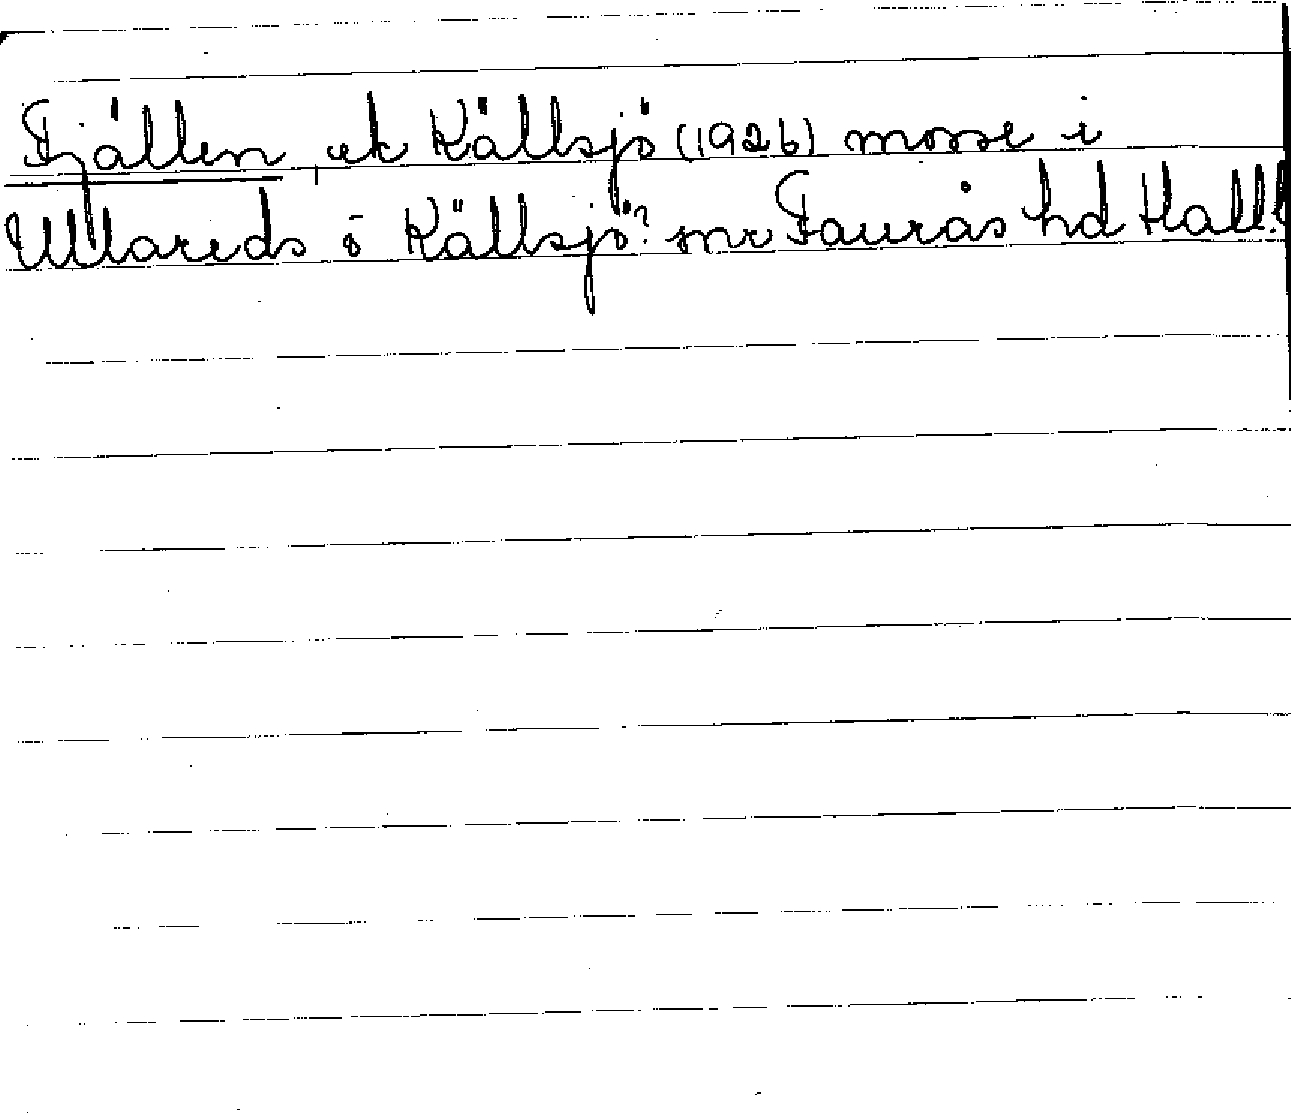 Fjällen, ek Källsjö (1926) mosse i
Ullareds o Källsjö? snr Faurås hd Hall.